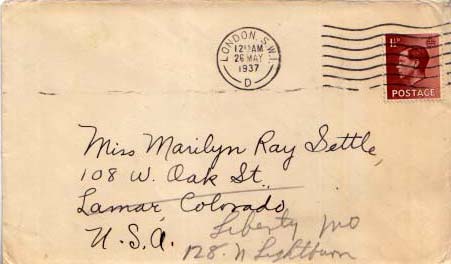 LONDON. S.W.1.
12 15 AM
26 MAY
1937
D
1½D
POSTAGE
Miss Marilyn Ray Settle
108 W. Oak St.
Lamar, Colorado
U.S.A.
Liberty Mo
128 N Lightburn